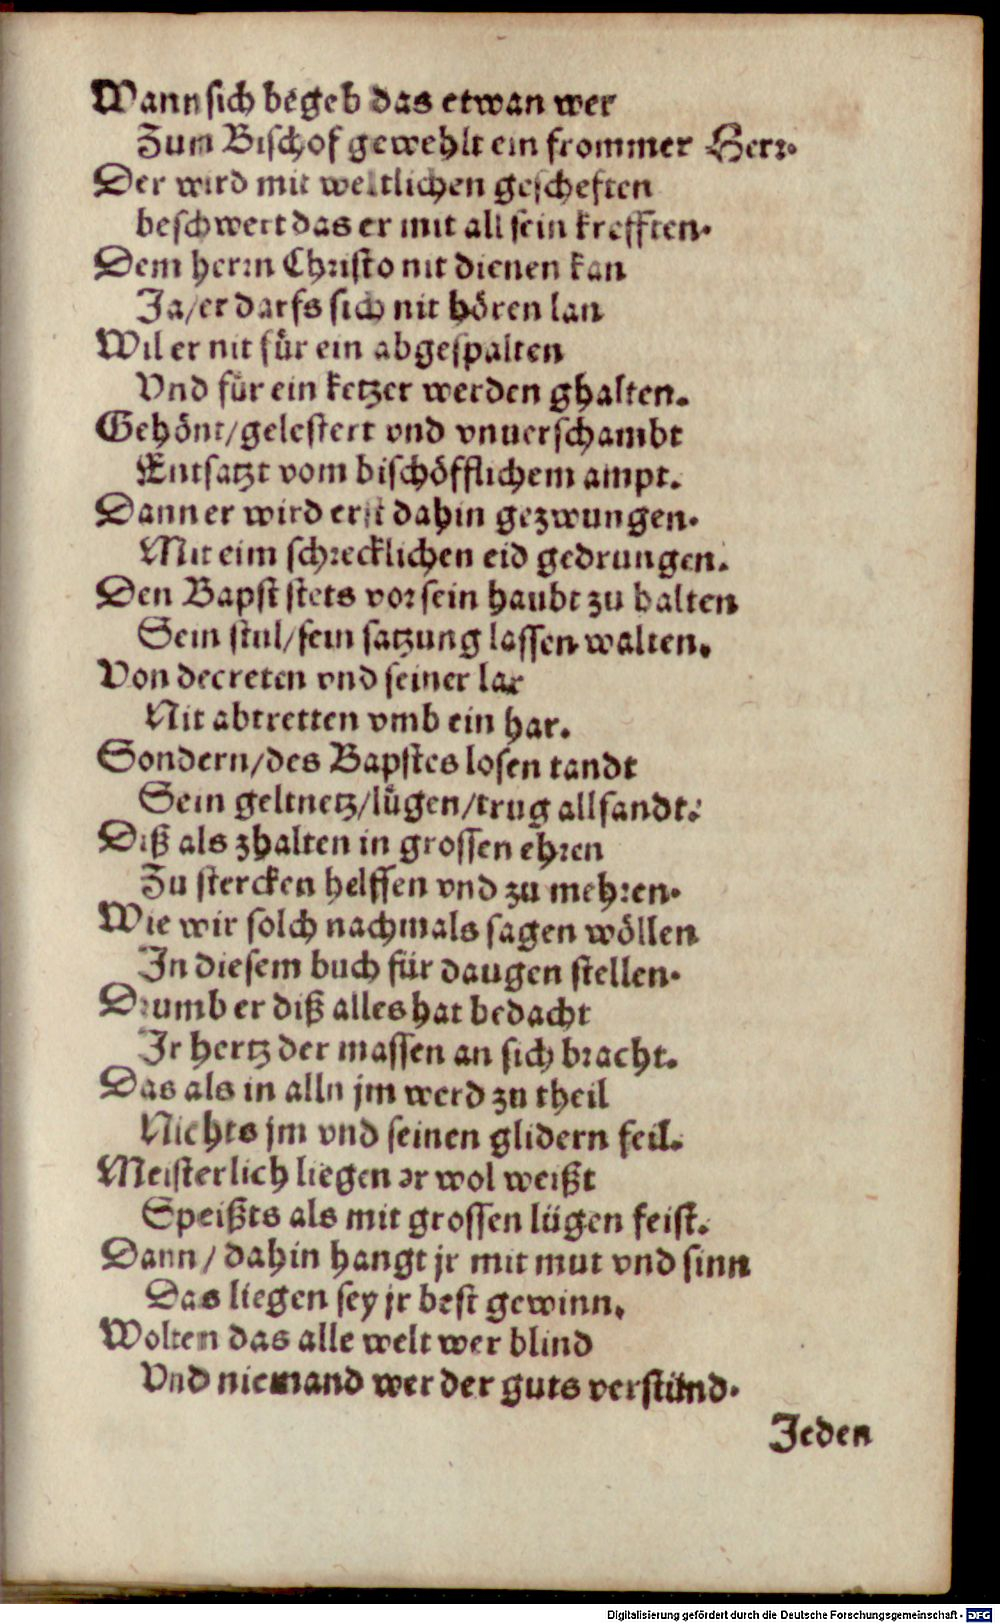 Wann sich begeb das etwan wer
Zum Bischof gewehlt ein frommer Herr.
Der wird mit weltlichen gescheften
beschwert das er mit all sein krefften.
Dem herrn Christo nit dienen kan
Ja/er darfs sich nit hören lan
Wil er nit für ein abgespalten
Vnd für ein ketzer werden ghalten.
Gehönt/gelestert vnd vnuerschambt
Entsatzt vom bischöfflichem ampt.
Dann er wird erst dahin gezwungen.
Mit eim schrecklichen eid gedrungen.
Den Bapst stets vor sein haubt zu halten
Sein stul/sein satzung lassen walten.
Von decreten vnd seiner lar
Nit abtretten vmb ein har.
Sondern/des Bapstes losen tandt
Sein geltnetz/lügen/trug allsandt.
Diß als zhalten in grossen ehren
Zu stercken helffen vnd zu mehren.
Wie wir solch nachmals sagen wöllen
In diesem buch für daugen stellen.
Drumb er diß alles hat bedacht
Ir hertz der massen an sich bracht.
Das als in alln jm werd zu theil
Nichts jm vnd seinen glidern feil.
Meisterlich liegen er wol weißt
Speißts als mit grossen lügen feist.
Dann/ dahin hangt jr mit mut vnd sinn
Das liegen sey jr best gewinn.
Wolten das alle welt wer blind
Vnd niemand wer der guts verstünd.
Jeden
Digitalisierung gefördert durch die Deutsche Forschungsgemeinschaft - DFG